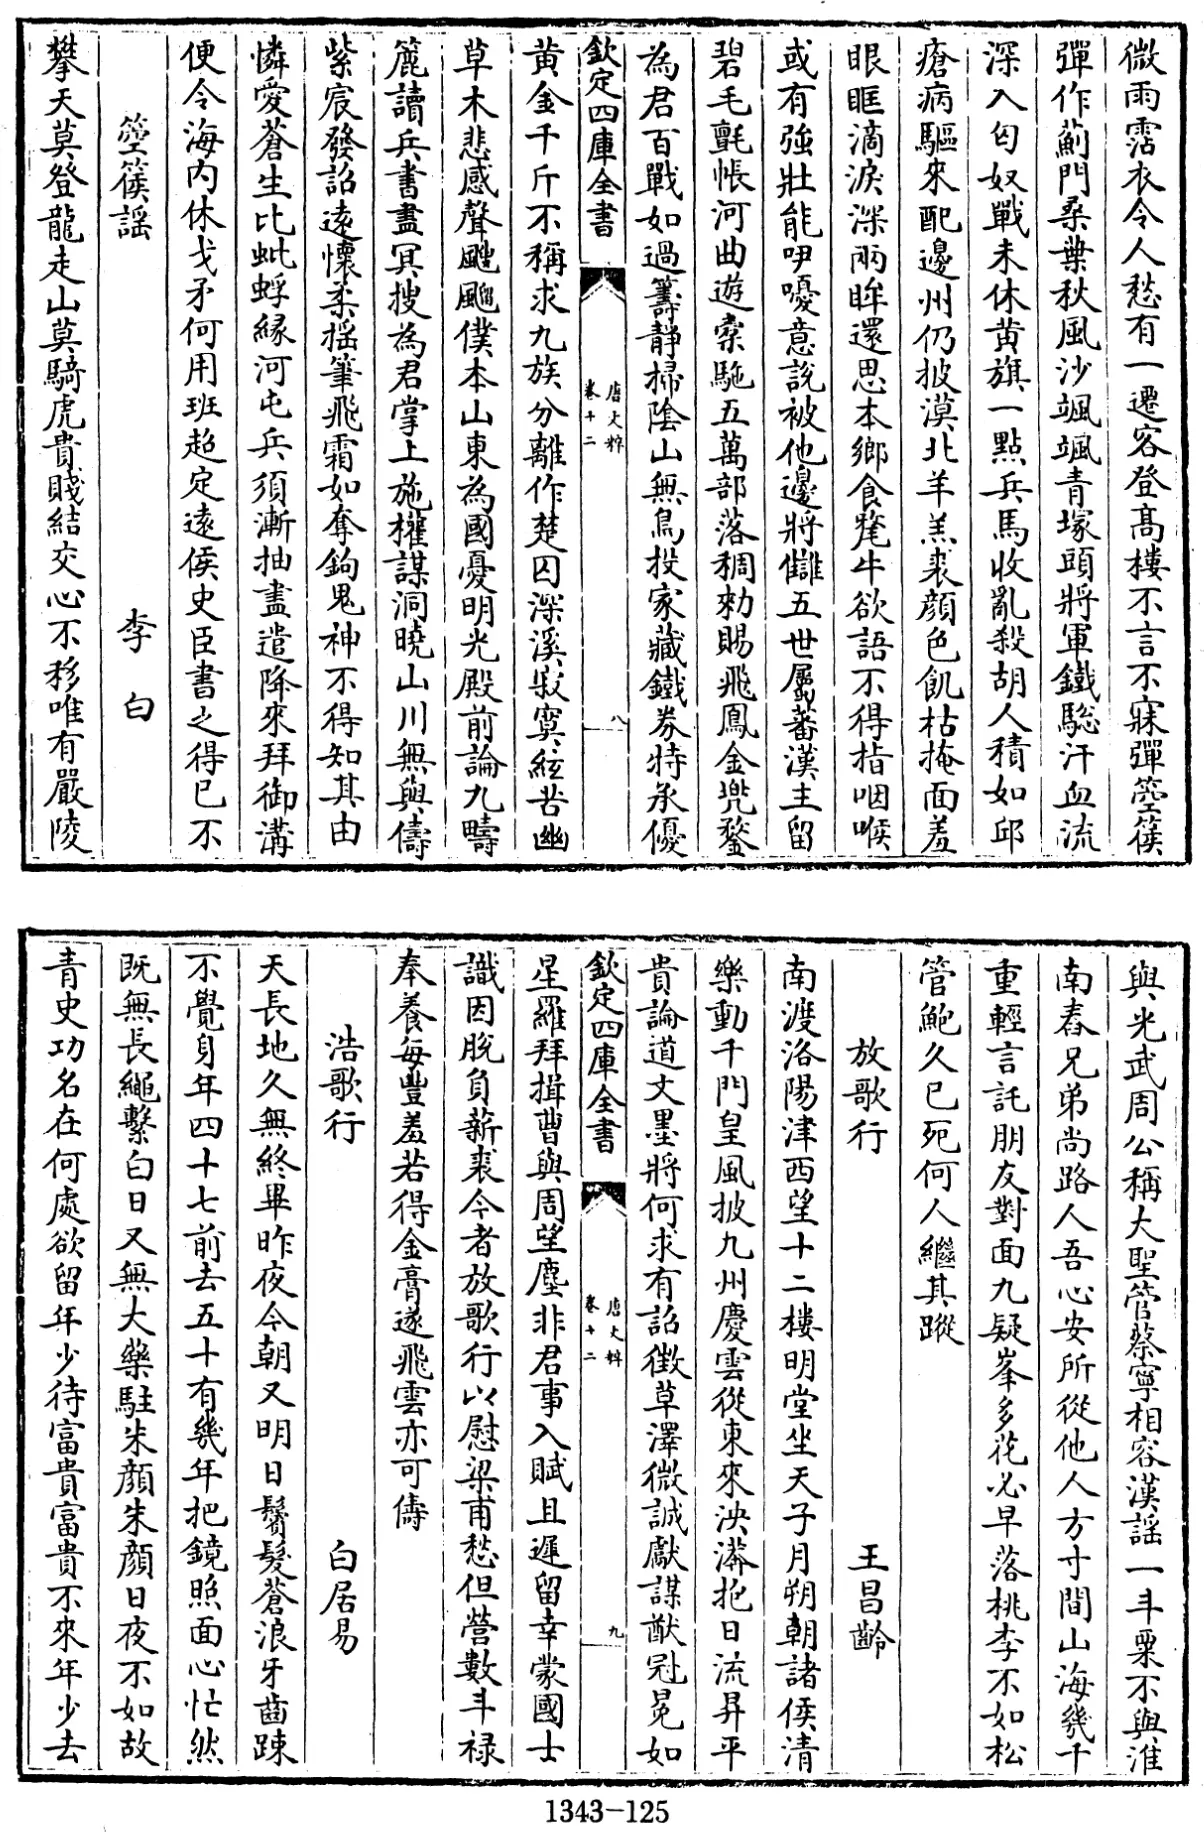 微雨霑衣令人愁有一遷客登髙樓不言不寐彈箜篌
彈作薊門桑葉秋風沙颯颯青塚頭將軍鐵驄汗血流
深入匈奴戰未休黄旗一點兵馬收亂殺胡人積如邱
瘡病驅來配邊州仍披漠北羊羔裘顔色飢枯掩面羞
眼眶滴淚深兩眸還思本鄉食氂牛欲語不得指咽喉
或有強壯能咿嚘意說被他邊將讎五世屬蕃漢主留
碧毛氊帳河曲遊槖駞五萬部落稠勑賜飛鳳金兠鍪
為君百戰如過籌靜掃陰山無鳥投家藏鐵券特承優
欽定四庫全書
唐文粹
卷十二
八
黄金千斤不稱求九族分離作楚囚深溪寂寞絃苦幽
草木悲感聲颼飀僕本山東為國憂明光殿前論九疇
簏讀兵書盡冥搜為君掌上施權謀洞曉山川無與儔
紫宸發詔遠懷柔揺筆飛霜如奪鉤鬼神不得知其由
憐愛蒼生比蚍蜉緣河屯兵須漸抽盡遣降來拜御溝
便令海内休戈矛何用班超定遠侯史臣書之得已不
箜篌謡　李白
攀天莫登龍走山莫騎虎貴賤結交心不移唯有嚴陵
與光武周公稱大聖管蔡寧相容漢謡一斗粟不與淮
南舂兄弟尚路人吾心安所從他人方寸間山海幾千
重輕言託朋友對面九疑峯多花必早落桃李不如松
管鮑久已死何人繼其蹤
放歌行　王昌齡
南渡洛陽津西望十二樓明堂坐天子月朔朝諸侯清
樂動千門皇風披九州慶雲從東來泱漭抱日流昇平
貴論道文墨將何求有詔徵草澤微誠獻謀猷冠冕如
欽定四庫全書
唐文粹
卷十二
九
星羅拜揖曹與周望塵非君事入賦且遲留幸蒙國士
識因脫負薪裘今者放歌行以慰梁甫愁但營數斗禄
奉養每豐羞若得金膏遂飛雲亦可儔
浩歌行　白居易
天長地久無終畢昨夜今朝又明日鬢髮蒼浪牙齒踈
不覺身年四十七前去五十有幾年把鏡照面心忙然
既無長繩繫白日又無大藥駐朱顔朱顔日夜不如故
青史功名在何處欲留年少待富貴富貴不來年少去
1343-125